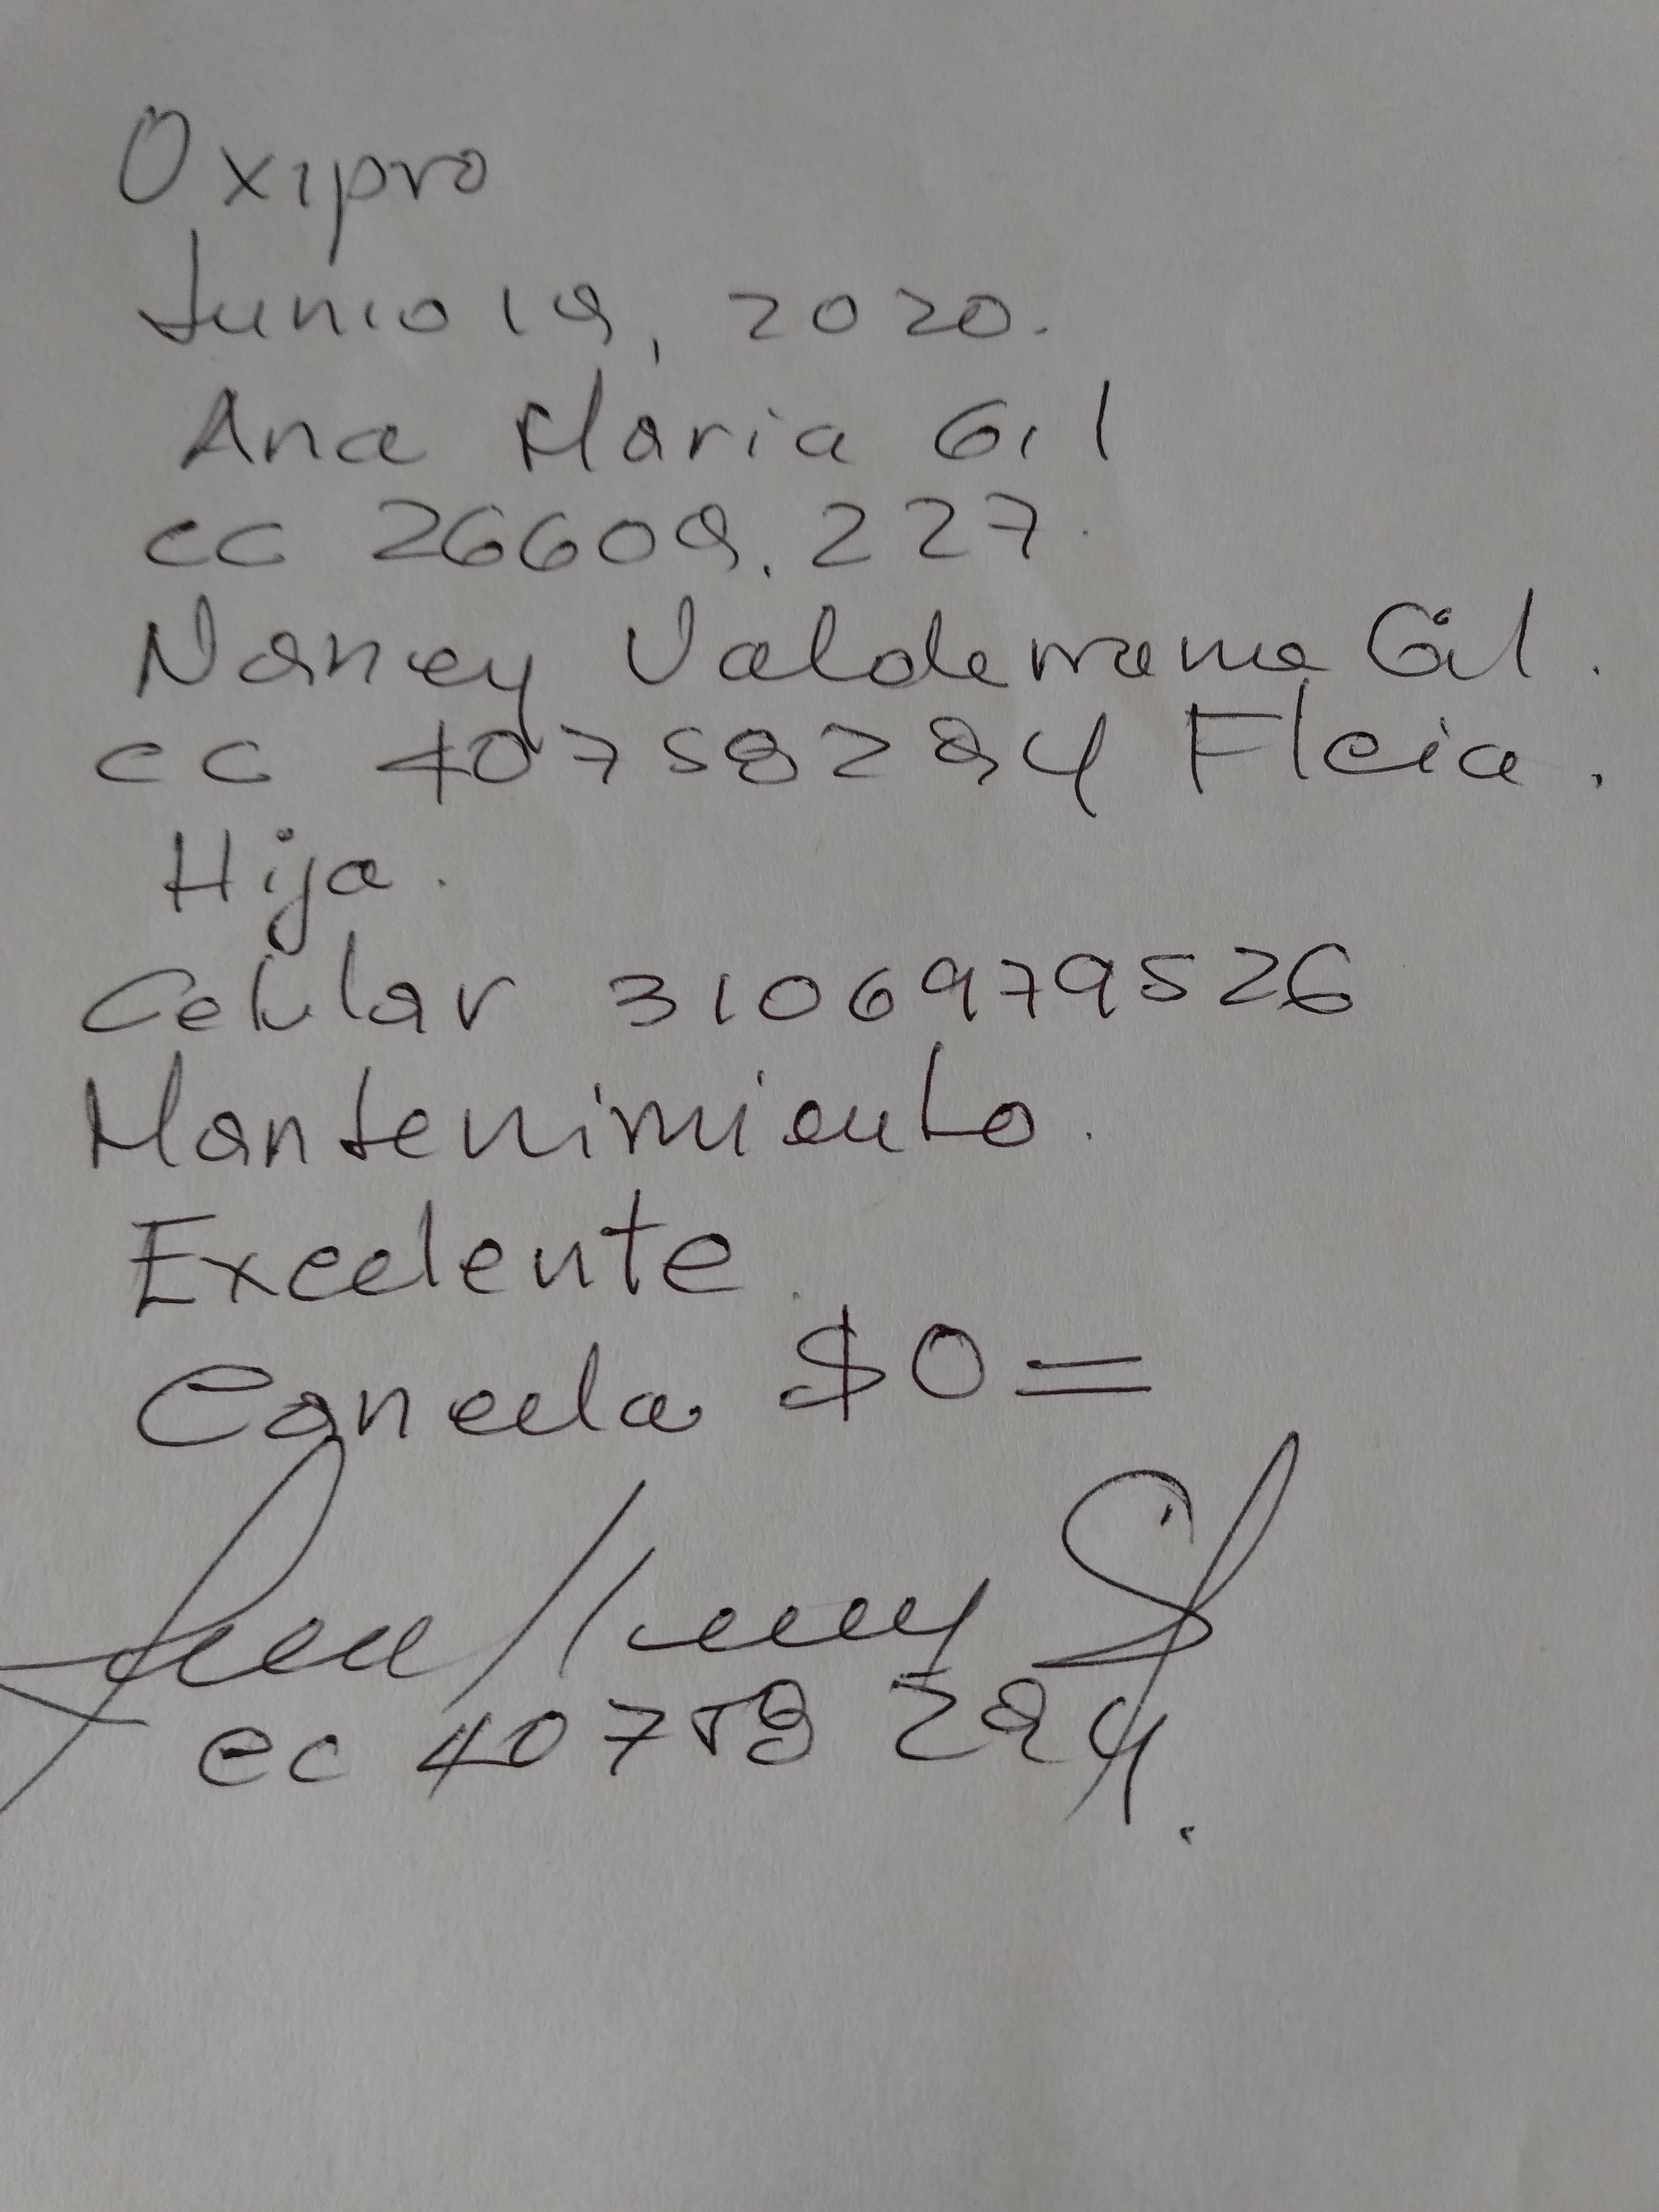 Oxipro
Junio 19, 2020.
Ana Maria Gil
cc 26609.227.
Nancy Valderrama Gil.
cc 40758294 Flcia.
Hija.
Celular 3106979526
Mantenimiento.
Excelente.
Cancela $0=
cc 40758294.